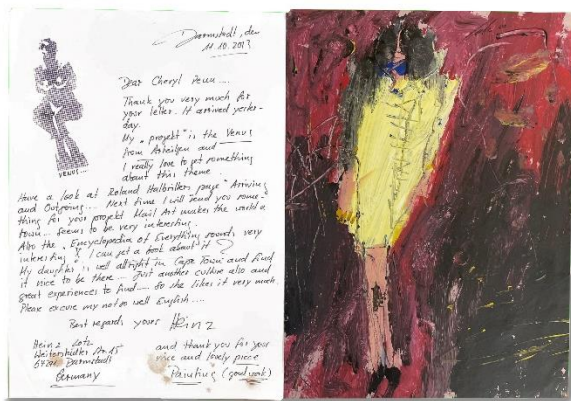 Darmstadt, den
11.10.2013
Dear Cheryl Penn....
Thank you very much for
your letter. It arrived yester-
day.
My „projekt" is the Venus
from and
I really love to get something
about this theme.
VENUS...
Have a look at Roland Halbritters page "Arriving
and Outgoing.... Next time I will send you some-
thing for your projekt Mail Art makes the world a
town... seems to be very interesting..
Also the „Encyclopedia of Everything sounds very
interesting. I can get a look about it?
My daughter is well allright in Cape Town and find
it nice to be there... Just another culture also and
great experiences to find... So she likes it very much
Please excuse my not so well English....
Best regards yours Heinz
Heinz Lotz
Weiterstädter Str. 15
Darmstadt
Germany
and thank you for your
nice and lovely piece
Painting (good work)